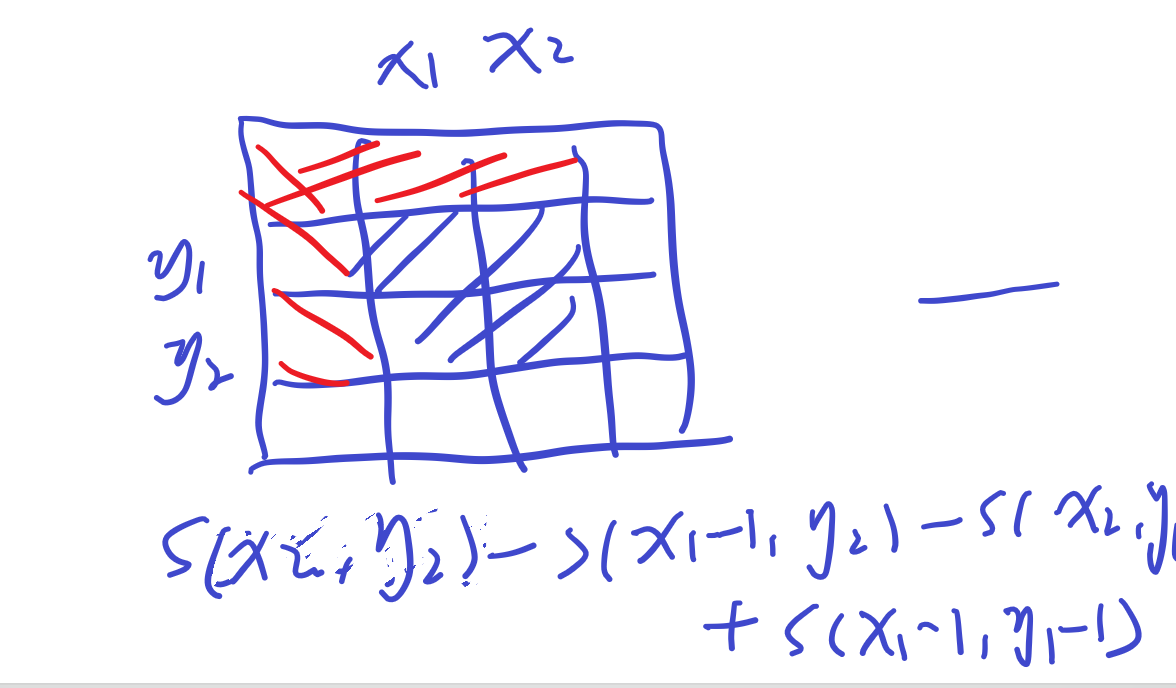 x₁ x₂
y₁
y₂
S(x₂, y₂) - S(x₁-1, y₂) - S(x₂, y
+ S(x₁-1, y₁-1)